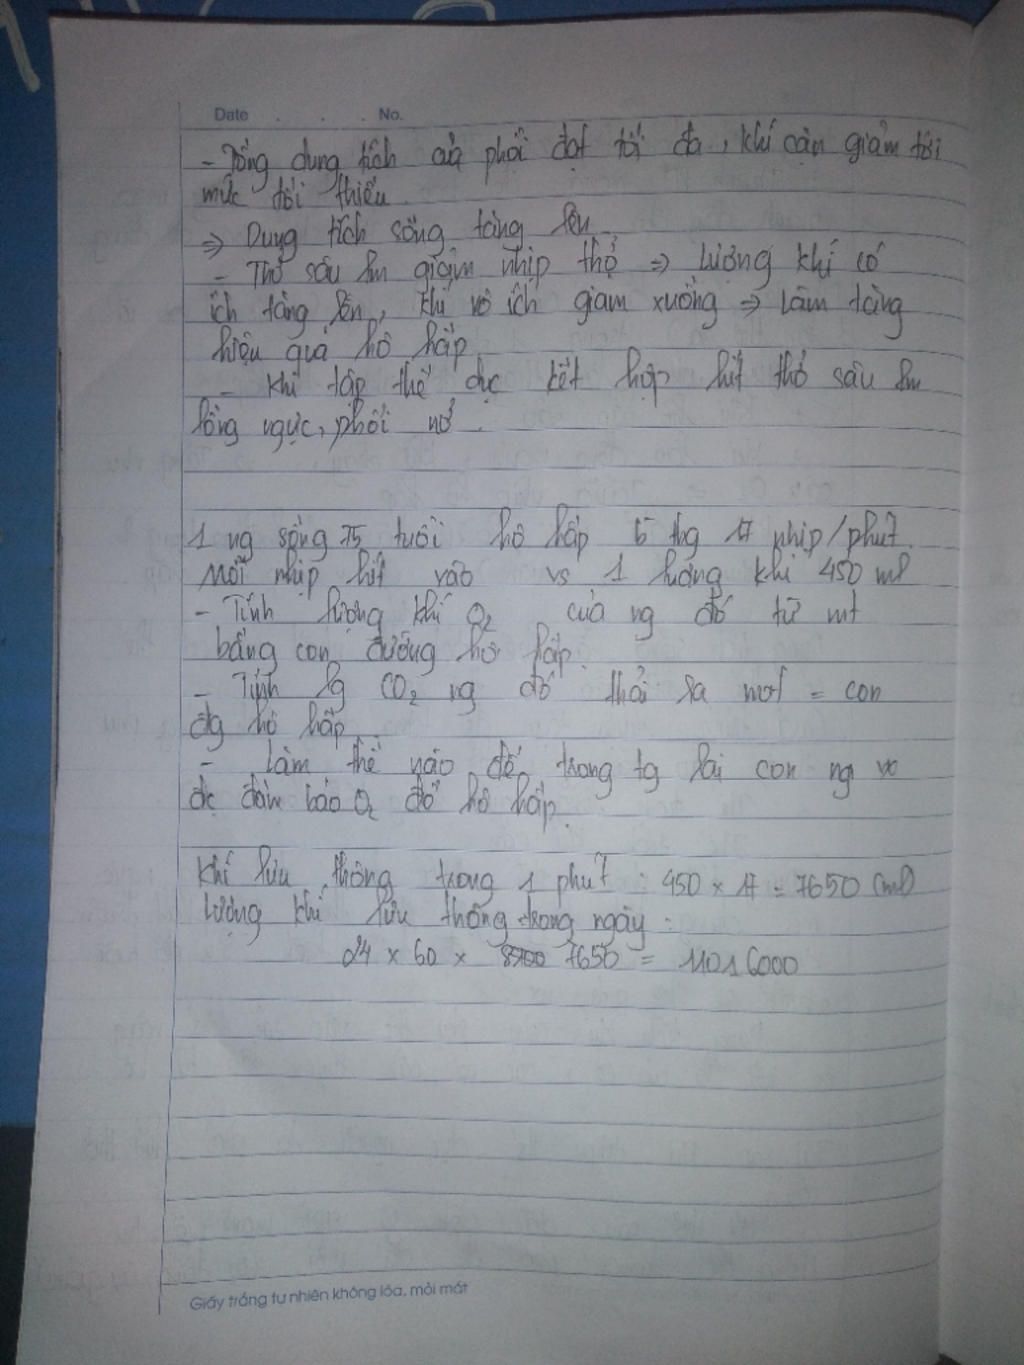 Date . . . No.
- Tổng dung tích của phổi đạt tối đa, khí cặn giảm tới
mức tối thiểu.
⇒ Dung tích sống tăng lên
- Thở sâu làm giảm nhịp thở ⇒ lượng khí có
ích tăng lên, khí vô ích giảm xuống ⇒ làm tăng
hiệu quả hô hấp
- Khi tập thể dục kết hợp hít thở sâu làm
lồng ngực, phổi nở.
1 ng sống 75 tuổi hô hấp bình thg 17 nhịp/phút.
Mỗi nhịp hít vào vs 1 lượng khí 450 ml
- Tính lượng khí O₂ của ng đó từ mt
bằng con đường hô hấp.
- Tính lg CO₂ ng đó thải ra = con
đg hô hấp
- Làm thế nào để trong tg lai con ng
đc đảm bảo O₂ để hô hấp.
Khí lưu thông trong 1 phút : 450 × 17 = 7650 (ml)
Lượng khí lưu thông trong ngày :
24 × 60 × 7650 = 11016000
Giấy trắng tự nhiên không lóa, mỏi mắt